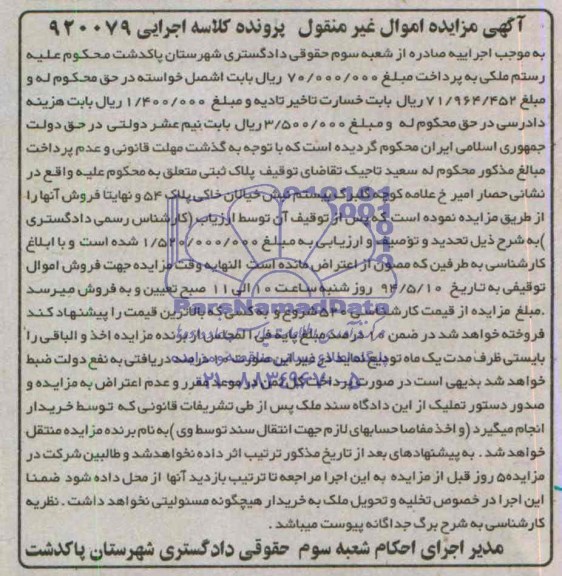 آگهی مزایده اموال غیر منقول پرونده کلاسه اجرایی ۹۲۰۰۷۹
به موجب اجراییه صادره از شعبه سوم حقوقی دادگستری شهرستان پاکدشت محکوم علیه
رستم ملکی به پرداخت مبلغ ۷۰/۰۰۰/۰۰۰ ریال بابت اشصل خواسته در حق محکوم له و
مبلغ ۷۱/۹۶۴/۴۵۲ ریال بابت خسارت تاخیر تادیه و مبلغ ۱/۴۰۰/۰۰۰ ریال بابت هزینه
دادرسی در حق محکوم له و مبلغ ۳/۵۰۰/۰۰۰ ریال بابت نیم عشر دولتی در حق دولت
جمهوری اسلامی ایران محکوم گردیده است که با توجه به گذشت مهلت قانونی و عدم پرداخت
مبالغ مذکور محکوم له سعید تاجیک تقاضای توقیف پلاک ثبتی متعلق به محکوم علیه واقع در
نشانی حصار امیر خ علامه کوچه گلبرگ بیستم نبش خیابان خاکی پلاک ۵۴ و نهایتا فروش آنها را
از طریق مزایده نموده است که پس از توقیف آن توسط ارزیاب (کارشناس رسمی دادگستری
)به شرح ذیل تحدید و توصیف و ارزیابی به مبلغ ۱/۵۲۰/۰۰۰/۰۰۰ شده است و با ابلاغ
کارشناسی به طرفین که مصون از اعتراض مانده است النهایه وقت مزایده جهت فروش اموال
توقیفی به تاریخ ۹۴/۵/۱۰ روز شنبه ساعت ۱۰ الی ۱۱ صبح تعیین و به فروش میرسد
.مبلغ مزایده از قیمت کارشناسی ۵۲۰ شروع و به کسی که بالاترین قیمت را پیشنهاد کند
فروخته خواهد شد در ضمن ۱۰ درصد مبلغ پایه فی المجلس از برنده مزایده اخذ و الباقی را
بایستی ظرف مدت یک ماه تودیع نماید در غیر این صورت ۱۰ درصد دریافتی به نفع دولت ضبط
خواهد شد بدیهی است در صورت پرداخت کل ثمن در موعد مقرر و عدم اعتراض به مزایده و
صدور دستور تملیک از این دادگاه سند ملک پس از طی تشریفات قانونی که توسط خریدار
انجام میگیرد (و اخذ مفاصا حسابهای لازم جهت انتقال سند توسط وی) به نام برنده مزایده منتقل
خواهد شد . به پیشنهادهای بعد از تاریخ مذکور ترتیب اثر داده نخواهد شد و طالبین شرکت در
مزایده ۵ روز قبل از مزایده به این اجرا مراجعه تا ترتیب بازدید آنها از محل داده شود ضمنا
این اجرا در خصوص تخلیه و تحویل ملک به خریدار هیچگونه مسئولیتی نخواهد داشت . نظریه
کارشناسی به شرح برگ جداگانه پیوست میباشد .
مدیر اجرای احکام شعبه سوم حقوقی دادگستری شهرستان پاکدشت
ParsNamadData
۰۲۱-۸۸۳۴۹۶۷۰-۵